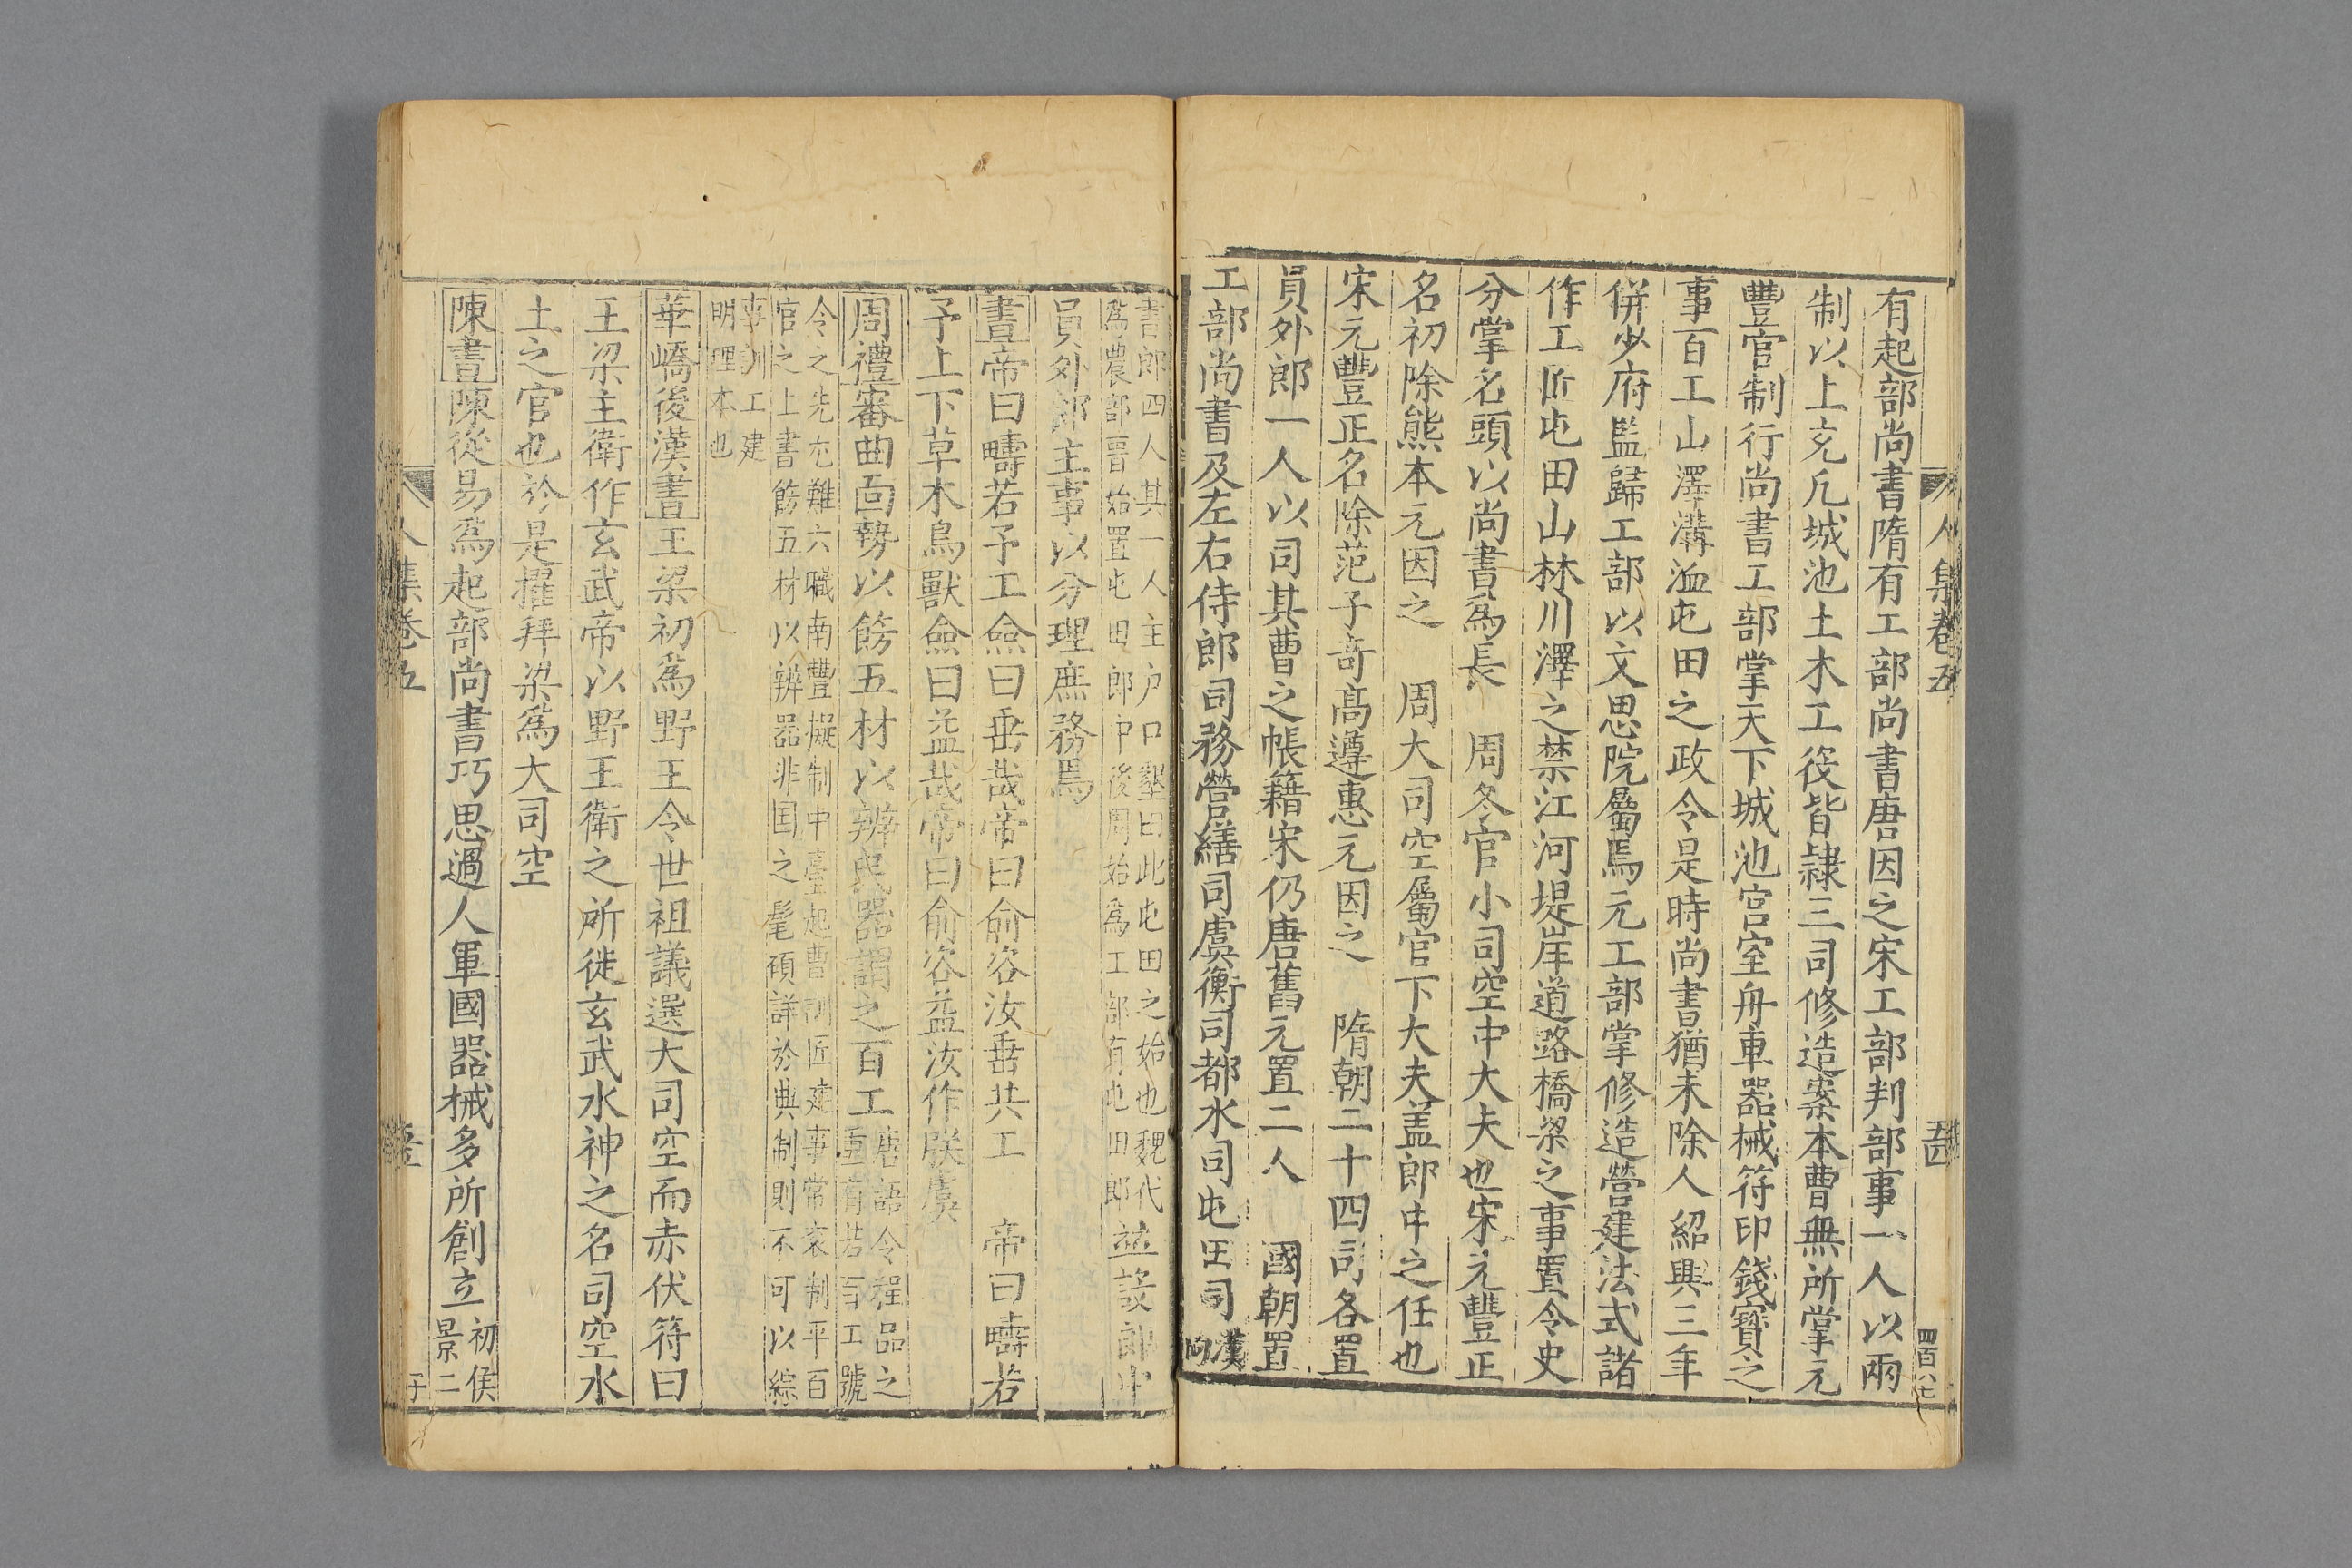 人集卷五
四百八七
有起部尚書隋有工部尚書唐因之宋工部判部事一人以兩
制以上充凡城池土木工役皆隷三司修造案本曹無所掌元
豐官制行尚書工部掌天下城池宫室舟車器械符印錢寳之
事百工山澤溝洫屯田之政令是時尚書猶未除人紹興三年
併少府監歸工部以文思院屬焉元工部掌修造營建法式諸
作工匠屯田山林川澤之禁江河堤岸道路橋梁之事置令史
分掌名頭以尚書爲長　周冬官小司空中大夫也宋元豐正
名初除熊本元因之　周大司空屬官下大夫盖郎中之任也
宋元豐正名除范子奇髙遵惠元因之　隋朝二十四司各置
員外郎一人以司其曹之帳籍宋仍唐舊元置二人　國朝置
工部尚書及左右侍郎司務營繕司虞衡司都水司屯田司漢
書郎四人其一人主户口墾田此屯田之始也魏代
爲農部晋始置屯田郎中後周始爲工部有屯田郎
並設郎中
員外郎主事以分理庶務焉
書帝曰疇若予工僉曰垂哉帝曰俞咨汝垂共工　帝曰疇若
予上下草木鳥獸僉曰益哉帝曰俞咨益汝作朕虞
周禮審曲面勢以飭五材以辨民器謂之百工
唐語令程品之
重有若百工號
令之先尤難六職南豐擬制中臺起曹訓匠建事常衮制平百
官之上書飭五材以辨器非国之髦碩詳於典制則不可以綜
事訓工建
明理本也
華嶠後漢書王梁初爲野王令世祖議選大司空而赤伏符曰
王梁主衛作玄武帝以野王衛之所徙玄武水神之名司空水
土之官也於是擢拜梁爲大司空
陳書陳從易爲起部尚書巧思過人軍國器械多所創立
初侯
景二
人集卷五